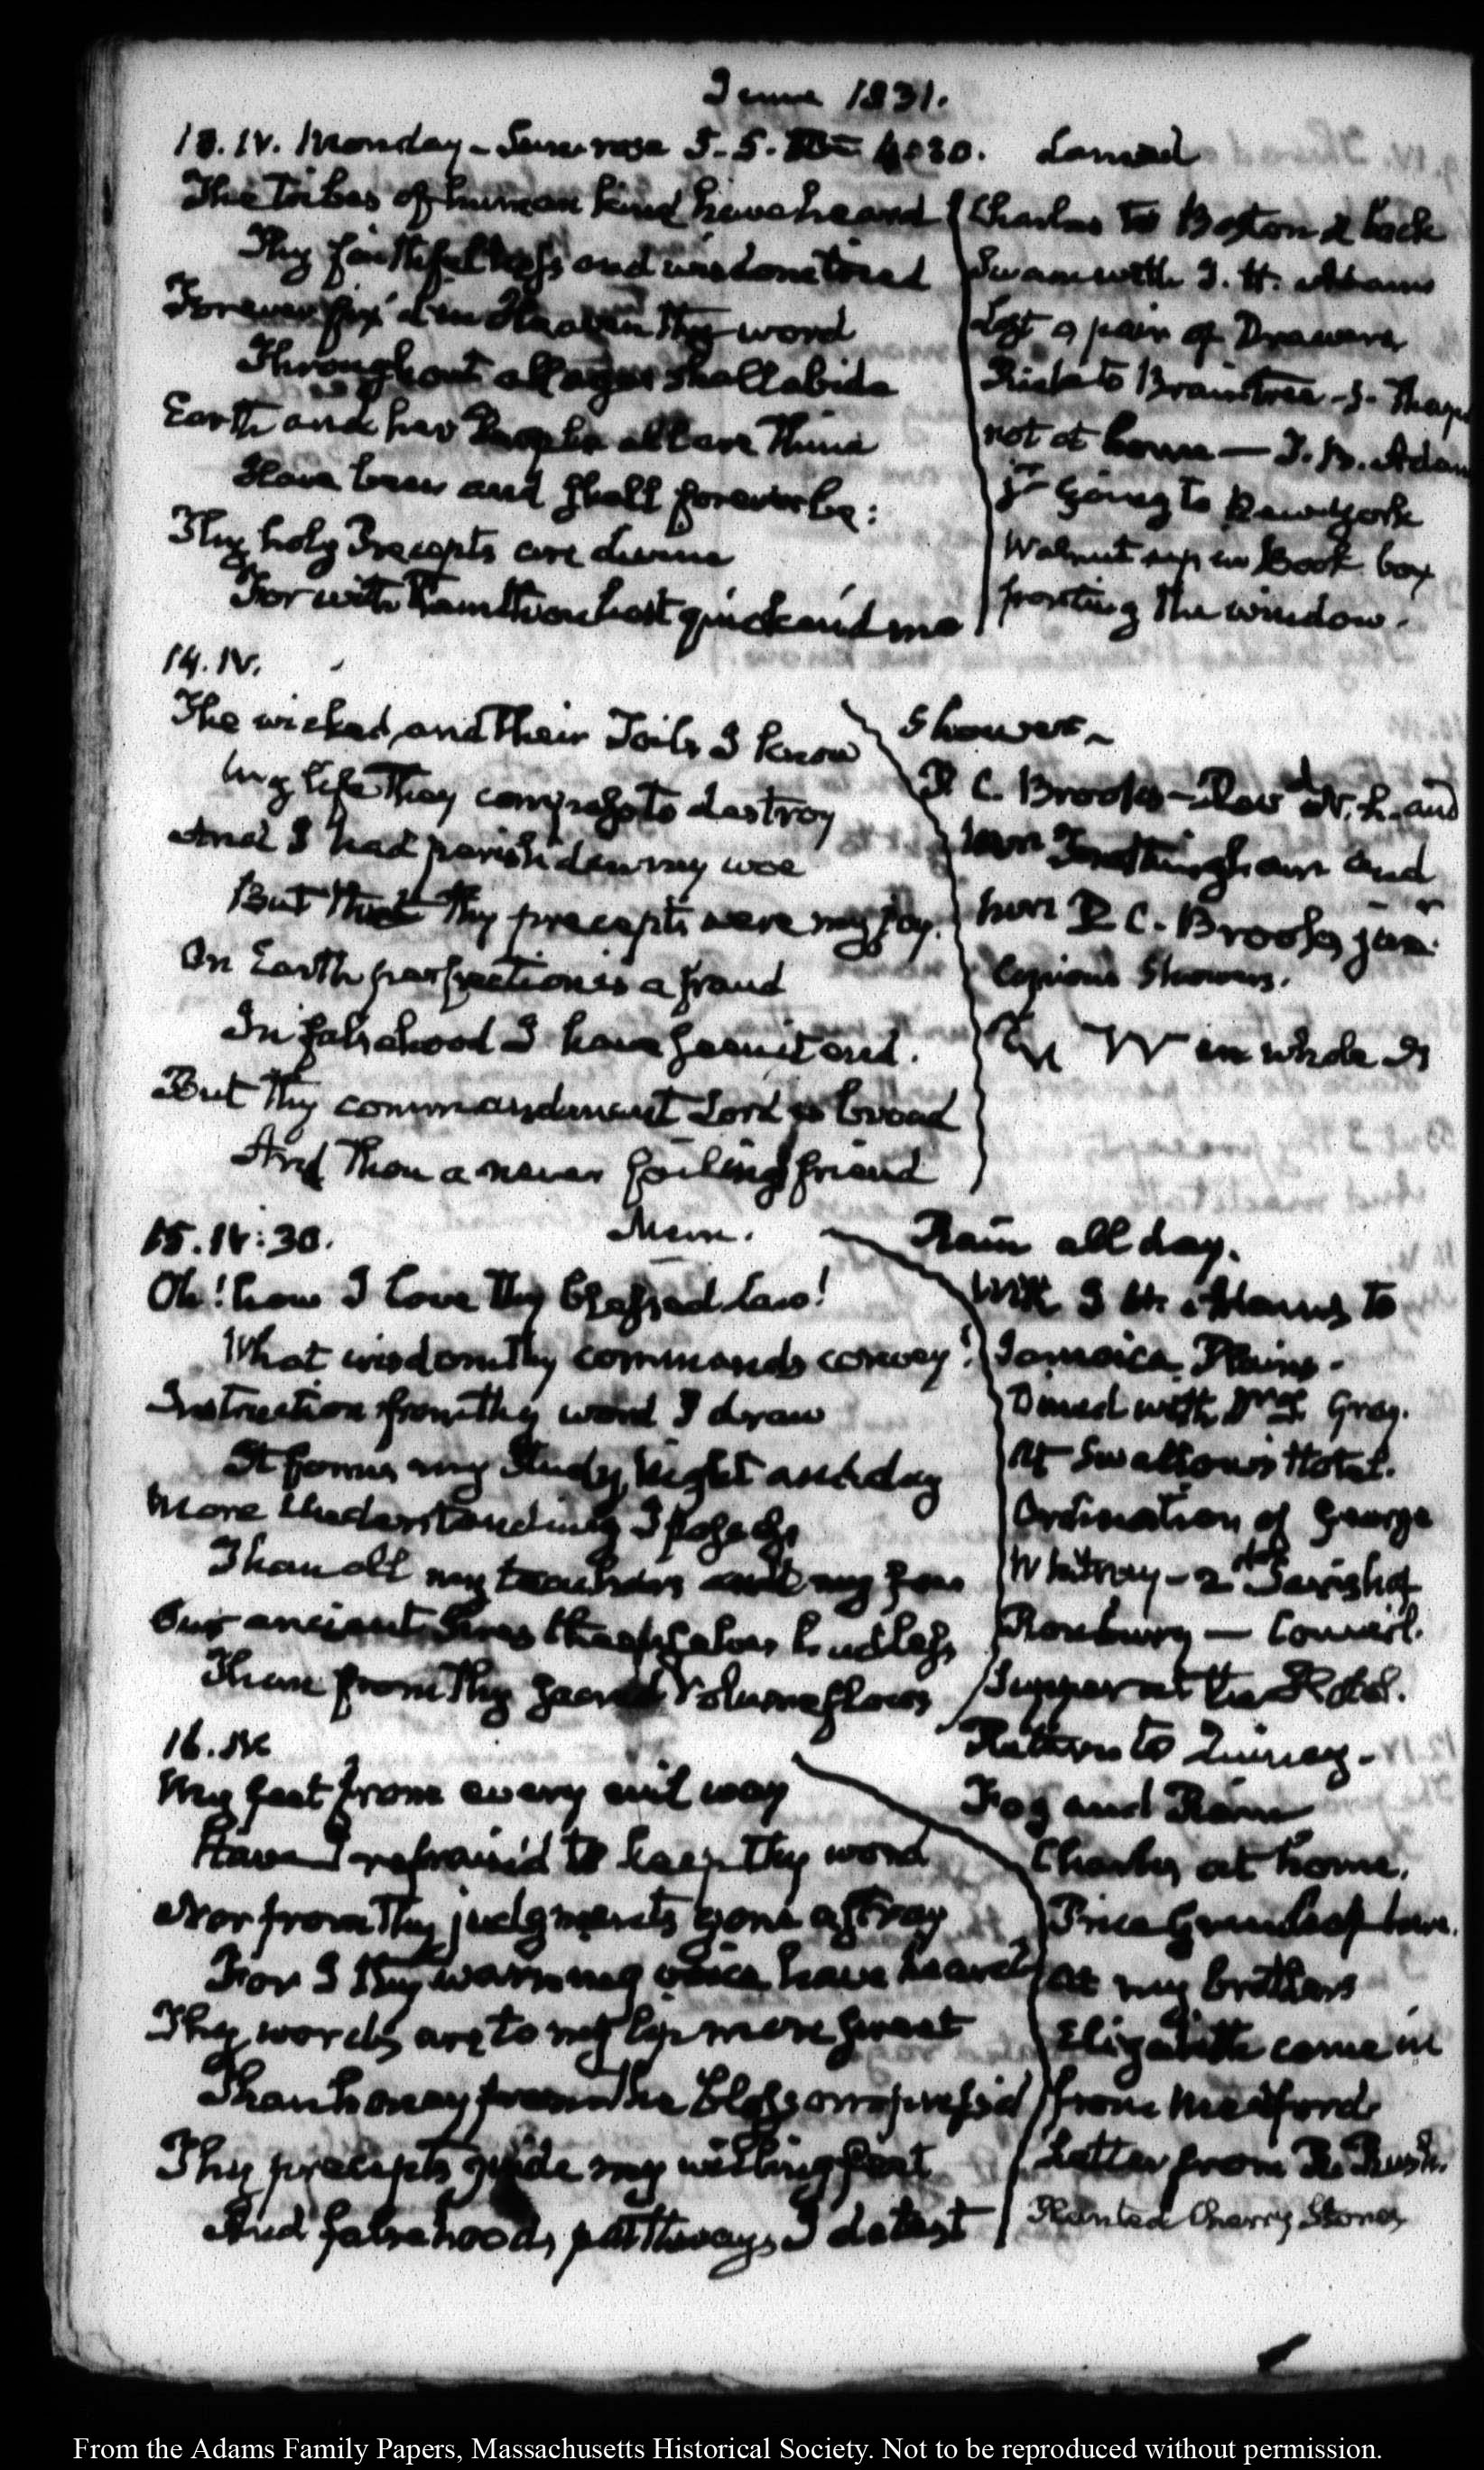 June 1831.
13. IV. Monday - Sun rose 5-5. 4:30. Lamed
The tribes of human kind have heard
Thy faithfulness and wisdom tried
Forever fix'd in Heaven thy word
Throughout all ages shall abide
Earth and her People all are Thine
Have been and shall forever be:
Thy holy Precepts are divine
For with them thou hast quicken'd me
Charles to Boston & back
Swam with I. H. Adams
Lost a pair of Drawers
Ride to Braintree - S. Thayer
not at home — T. B. Adams
jr going to New York
Walnut up in Book box
fronting the window.
14. IV.
The wicked, and their Toils I know
My life They compass to destroy
And I had perish'd in my woe
But that Thy precepts were my joy.
On Earth perfection is a fraud
In falsehood I have seen it end.
But Thy commandment Lord is broad
And Thou a never failing friend
Shower ~
P. C. Brooks - Revd N. L. and
Mrs Frothingham and
Mrs P. C. Brooks junr
Copious Showers.
in whole
15. IV:30. Mem.
Oh! how I love Thy blessed law!
What wisdom thy commands convey!
Instruction from thy word I draw
It forms my Study, Night and day
More Understanding I possess
Than all my teachers and my foes
Our ancient Sires themselves had less
Than from Thy sacred Volume flows
Rain all day.
With I H. Adams to
Jamaica Plains.
Dined with Mr T. Gray.
At Swallow's Hotel.
Ordination of George
Whitney - 2d Parish of
Roxbury — Council.
Supper at the Hotel.
Return to Quincy -
16. IV
My feet from every evil way
Have I refrain'd to keep thy word
Nor from Thy judgments gone astray
For I Thy warning voice have heard
Thy words are to my lips more sweet
Than honey from the blossom press'd
Thy precepts guide my willing feet
And falsehood's pathways I detest
Fog and Rain
Charles at home.
Price Greenleaf here.
At my brother's
Elizabeth came in
from Medford
Letter from R. Rush.
Planted Cherry Stones
From the Adams Family Papers, Massachusetts Historical Society. Not to be reproduced without permission.